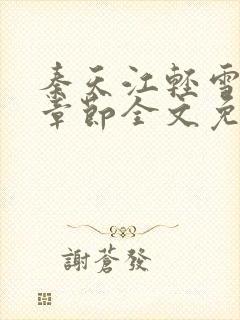 秦天江輕雪
章節全文免
謝蒼發